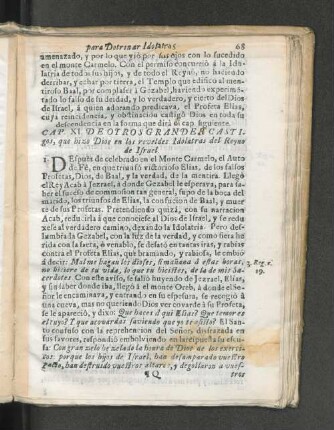 para Dotrinar Idolatras. 68
amenazado, y por lo que vió por sus ojos con lo sucedido
en el monte Carmelo. Con el permiso concurrió á la Ido-
latria de todos sus hijos, y de todo el Reyno, no haciendo
derribar, y echar por tierra, el Templo que edificó al men-
tiroso Baal, por complacer á Gezabel; haviendo experimẽ-
tado lo falso de su verdad, y lo verdadero, y cierto del Dios
de Israel, á quien adorando predicava, el Profeta Elias,
cuya reincidencia, y obstinacion castigó Dios en toda su
descendencia en la forma que dirá el cap. siguiente.
CAP. XI. DE OTROS GRANDES CASTI-
gos, que hizo Dios en los reveldes Idolatras del Reyno
de Israel.
1. DEspues de celebrado en el Monte Carmelo, el Auto
de Fè, en que triunfó victorioso Elias, de los falsos
Profetas, Dios, de Baal, y la verdad, de la mentira. Llegó
el Rey Acab á Jezraèl, á donde Gezabèl le esperava, para sa-
ber el sucesso de
los triunfos de Elias, la confucion de Baal, y muer-
te de sus Profetas. Pretendiendo quizá, con su narracion
Acab, reducirla á que conociesse al Dios de Israel, y redu-
xesse al verdadero camino, dexando la Idolatria. Pero des-
lumbrada Gezabèl, con la luz de la verdad, y como fiera hi-
rida con la saeta, ò venablo, se desató en tantas iras, y rabias
contra el Profeta Elias, que bramando, y rabiando, le embió
á decir: Mal me hagan los dioses, si mañana á estas horas,
no hiciere de tu vida, lo que tu hiciste, de la de mis Sa-
cerdotes. Con este aviso, se salió huyendo de Jezraèl, Elias,
y sin saber donde iba, llegó á el monte Oreb, á donde el Se-
ñor le encaminava, y entrando en su espesura, se recogió á
una cueva, mas no queriendo Dios ver covarde á su Profeta,
se le apareció, y dixo: Que haces á qui Elias? Que temor es
el tuyo? Y que acovardas saviendo que yo te assisto? El San-
to confuso con la reprehencion del Señor, disfrazada en
sus favores, respondió embolviendo en la respuesta su escu-
sa: Con gran zelo hè zelado la honra de Dios de los exerci-
tos: porque los hijos de Israel, han desamparado vuestro
pacto, han destruido vuestros altares, y degollaron a vues-
¶Q tros
Reg. c.
19.